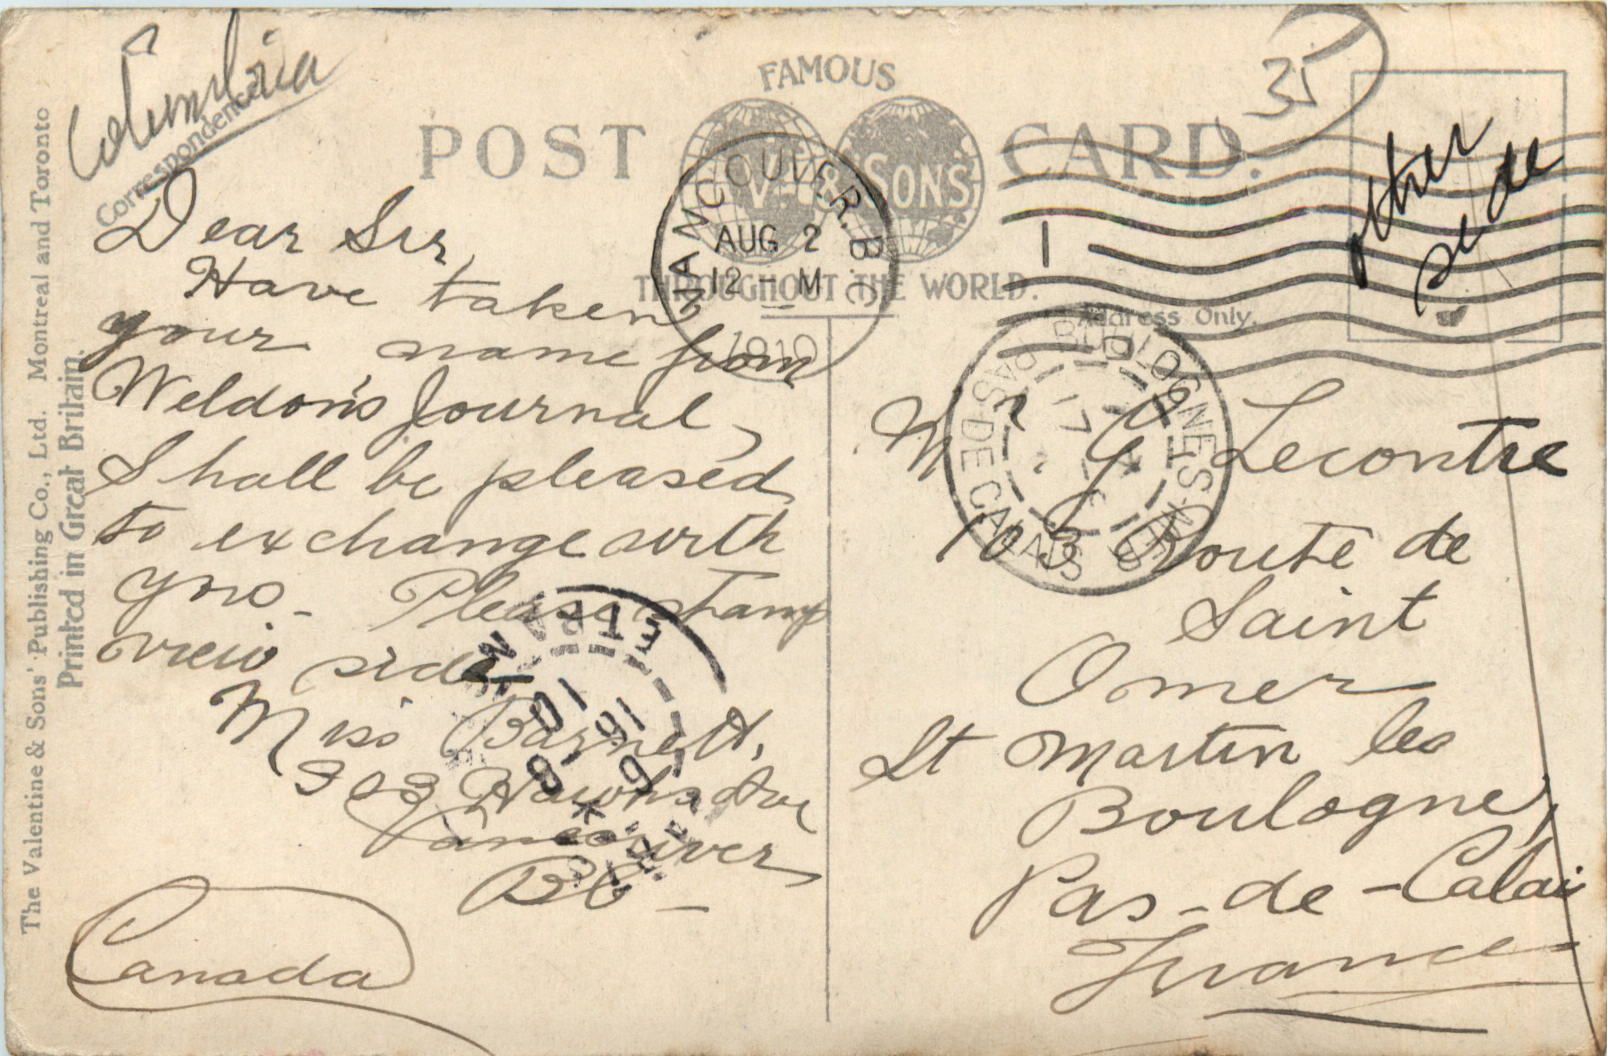 Columbia
Correspondence
FAMOUS
POST CARD.
V. & SONS
THROUGHOUT THE WORLD.
Address Only.
VANCOUVER. B.C.
AUG 2
12 - M
1910
35
other
side
The Valentine & Sons' Publishing Co., Ltd. Montreal and Toronto
Printed in Great Britain.
Dear Sir,
Have taken
your name from
Weldon's Journal,
Shall be pleased
to exchange with
you - Please stamp
view side
Miss Barnett,
303 Hawks Ave
Vancouver
BC -
Canada
BOULOGNE-S-MER
PAS-DE-CALAIS
17
ETRANG
16
10
Mr. G Lecontre
103 Route de
Saint
Omer
St Martin les
Boulogne,
Pas-de-Calais
France